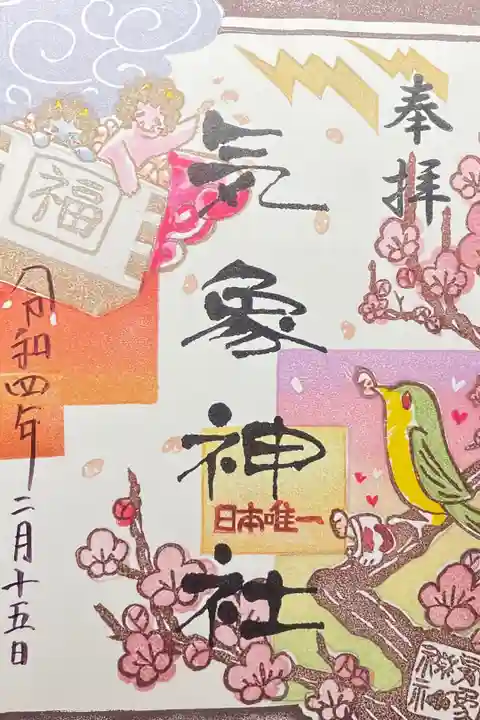 奉拝
気象神社
日本唯一
福
令和四年
二月十五日